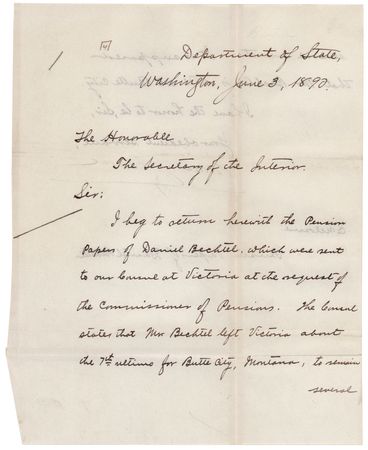 [4]
Department of State,
Washington, June 3, 1890.
The Honorable
The Secretary of the Interior.
Sir:
I beg to return herewith the Pension
Papers of Daniel Bechtel, which were sent
to our Consul at Victoria at the request of
the Commissioner of Pensions. The Consul
states that Mr. Bechtel left Victoria about
the 7th ultimo for Butte City, Montana, to remain
several